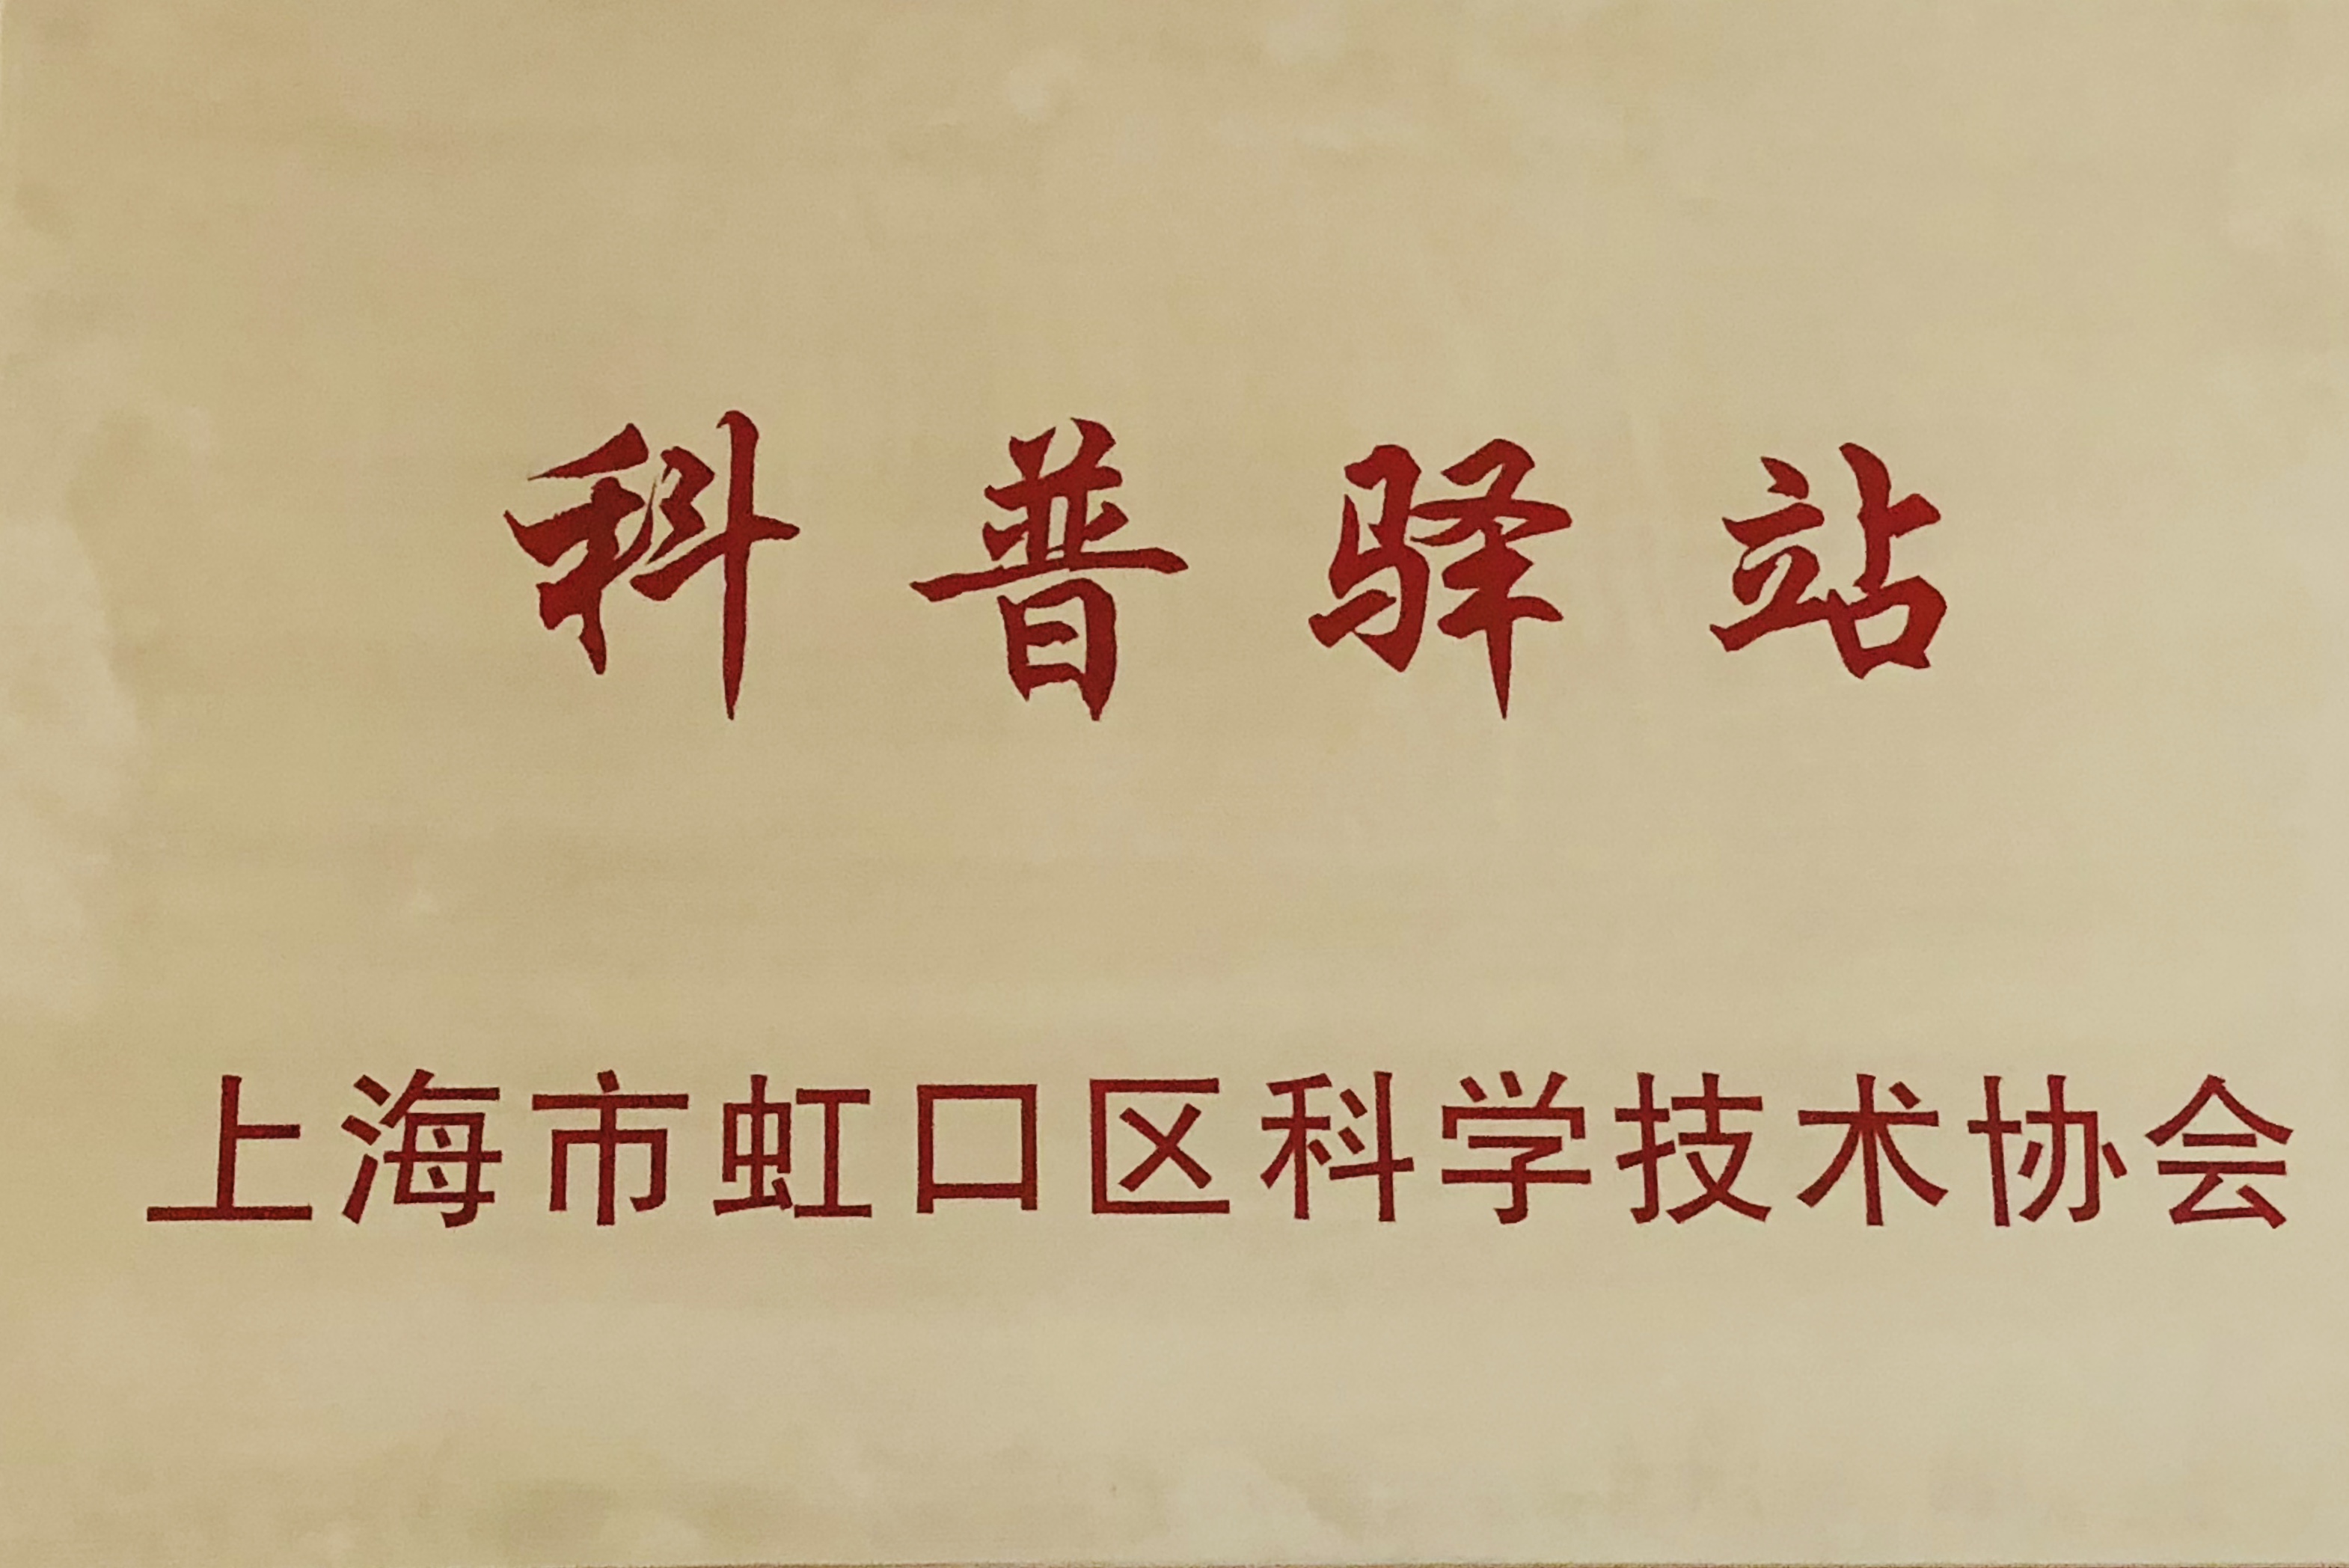 科普驿站
上海市虹口区科学技术协会